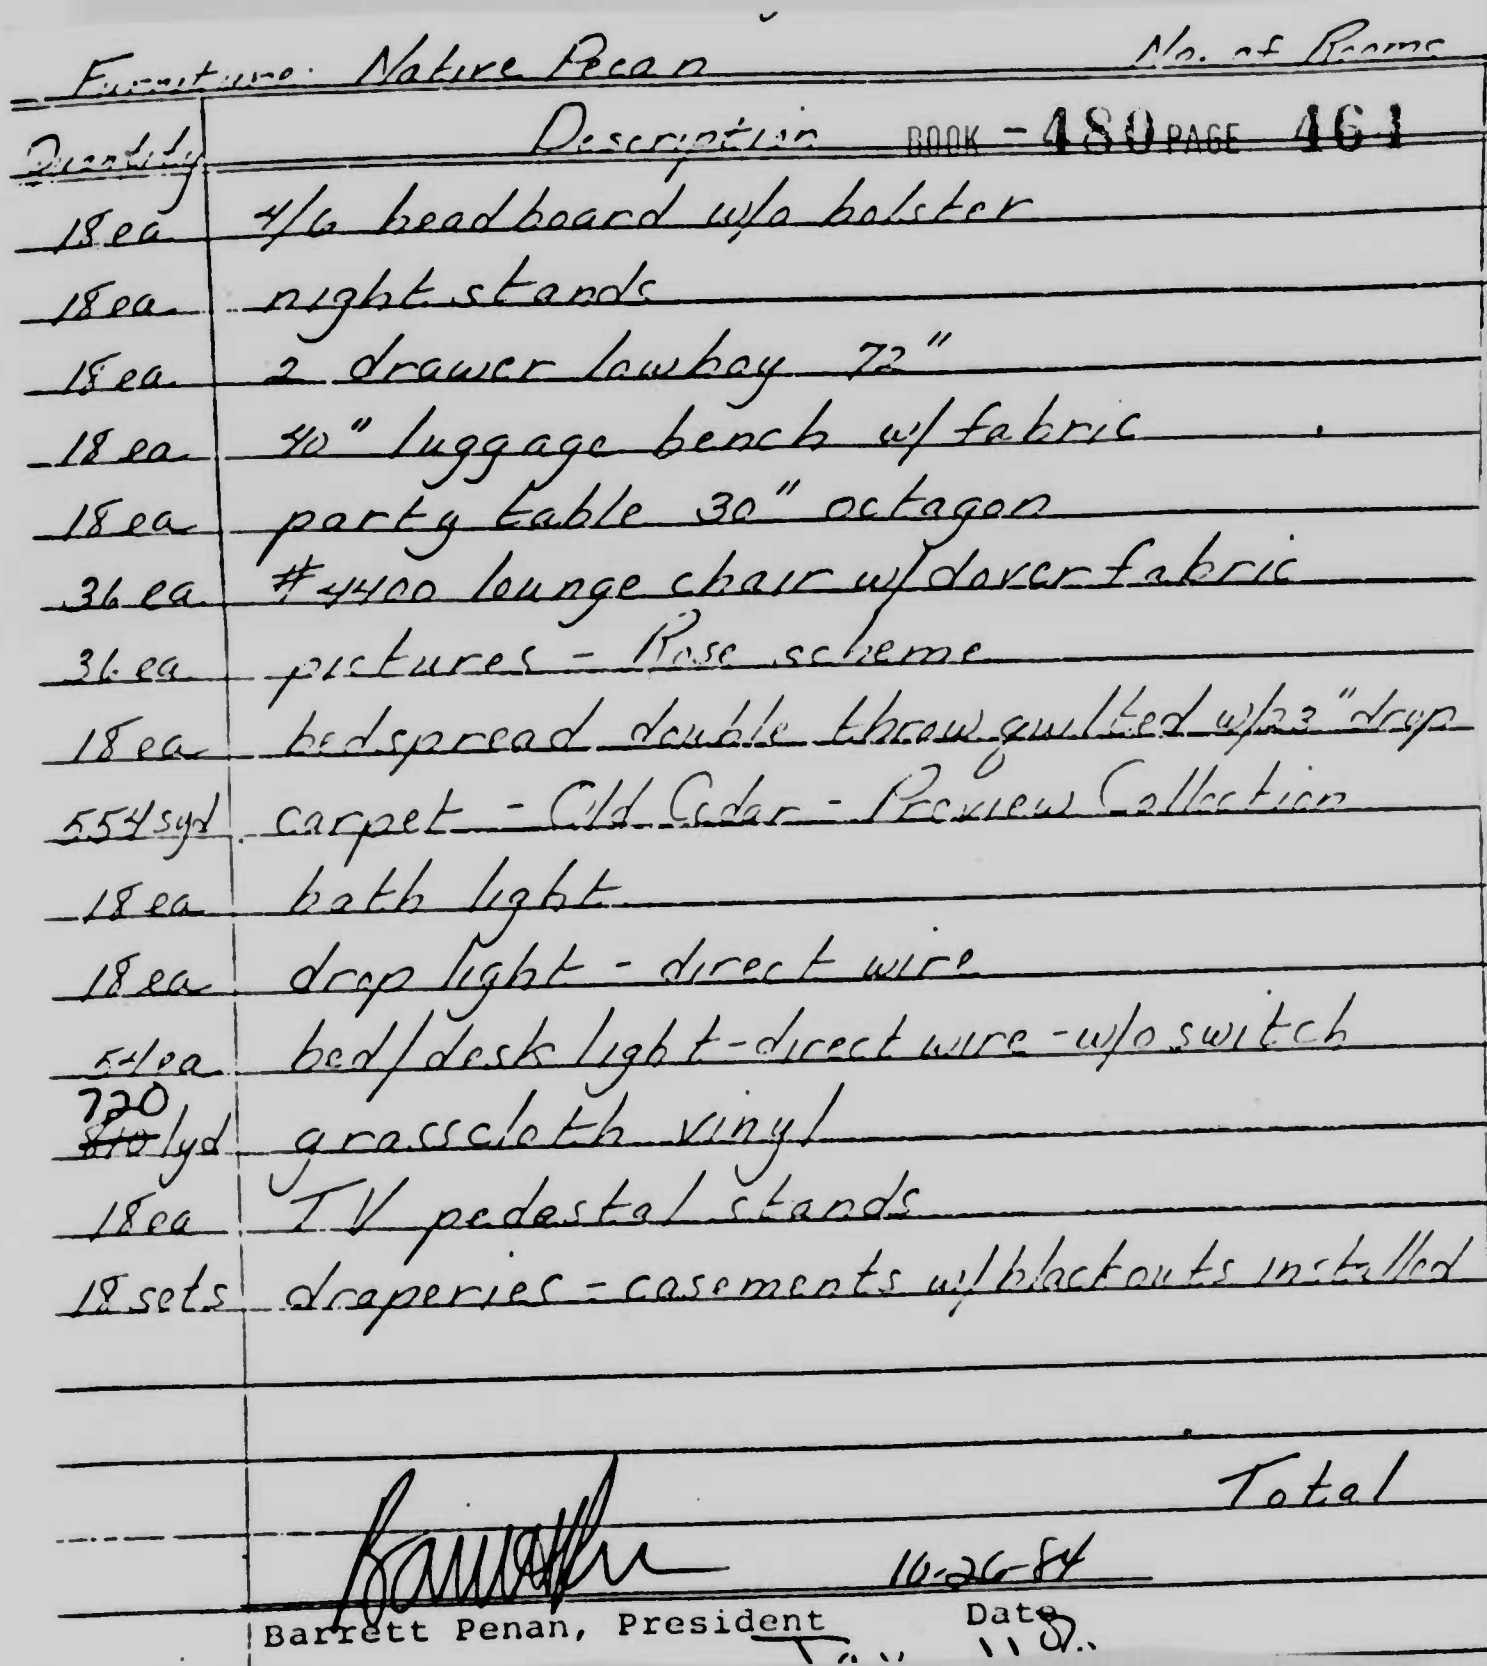 Furniture: Native Pecan No. of Rooms
Quantity Description BOOK - 480 PAGE 461
18 ea 4/6 headboard w/o bolster
18 ea night stands
18 ea 2 drawer lowboy 72"
18 ea 40" luggage bench w/ fabric
18 ea party table 30" octagon
36 ea #4400 lounge chair w/dover fabric
36 ea pictures - Rose scheme
18 ea bedspread double throw quilted w/23" drop
554 syd carpet - Old Cedar - Preview Collection
18 ea bath light
18 ea drop light - direct wire
54 ea bed/desk light-direct wire-w/o switch
720
810 lyd grasscloth vinyl
18 ea TV pedestal stands
18 sets draperies - casements w/blackouts installed
Total
10-26-84
Barrett Penan, President Date